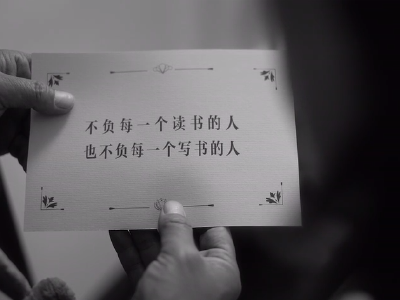 不负每一个读书的人
也不负每一个写书的人